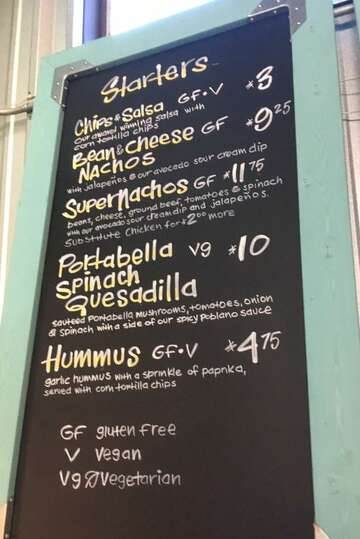 Starters
Chips & Salsa GF•V *3
our award winning salsa with
corn tortilla chips
Bean & Cheese GF *9.25
Nachos
with jalapeños & our avocado sour cream dip
Super Nachos GF *11.75
beans, cheese, ground beef, tomatoes & spinach
with our avocado sour cream dip and jalapeños.
Substitute Chicken for $2.00 more
Portabella Vg *10
Spinach
Quesadilla
sauteed Portabella mushrooms, tomatoes, onion
& spinach with a side of our spicy Poblano sauce
Hummus GF•V *4.75
garlic hummus with a sprinkle of paprika,
served with corn tortilla chips
GF gluten free
V Vegan
Vg Vegetarian